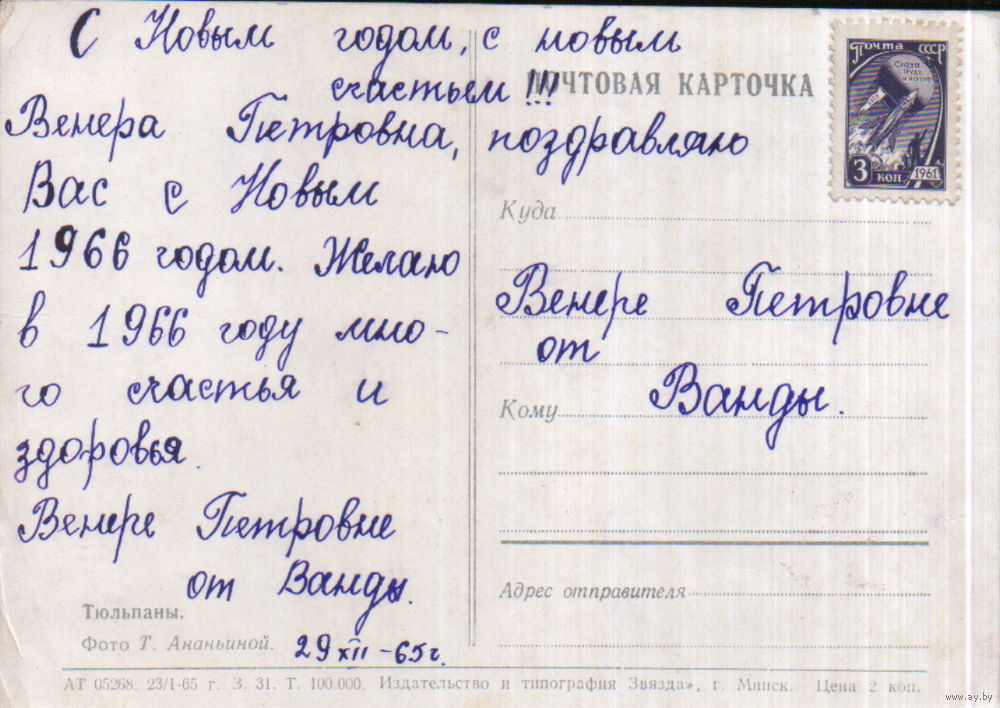 С Новым годом, с новым
счастьем!!!
ПОЧТОВАЯ КАРТОЧКА
Венера Петровна, поздравляю
Вас с Новым
1966 годом. Желаю
в 1966 году мно-
го счастья и
здоровья.
Венере Петровне
от Ванды.
29 XII - 65 г.
Тюльпаны.
Фото Т. Ананьиной.
почта СССР
Слава
труду
и науке
3 коп
1961
Куда
Венере Петровне
от
Кому
Ванды.
Адрес отправителя
АТ 05268. 23/I-65 г. З. 31. Т. 100.000. Издательство и типография Звязда», г. Минск. Цена 2 коп.
www.ay.by